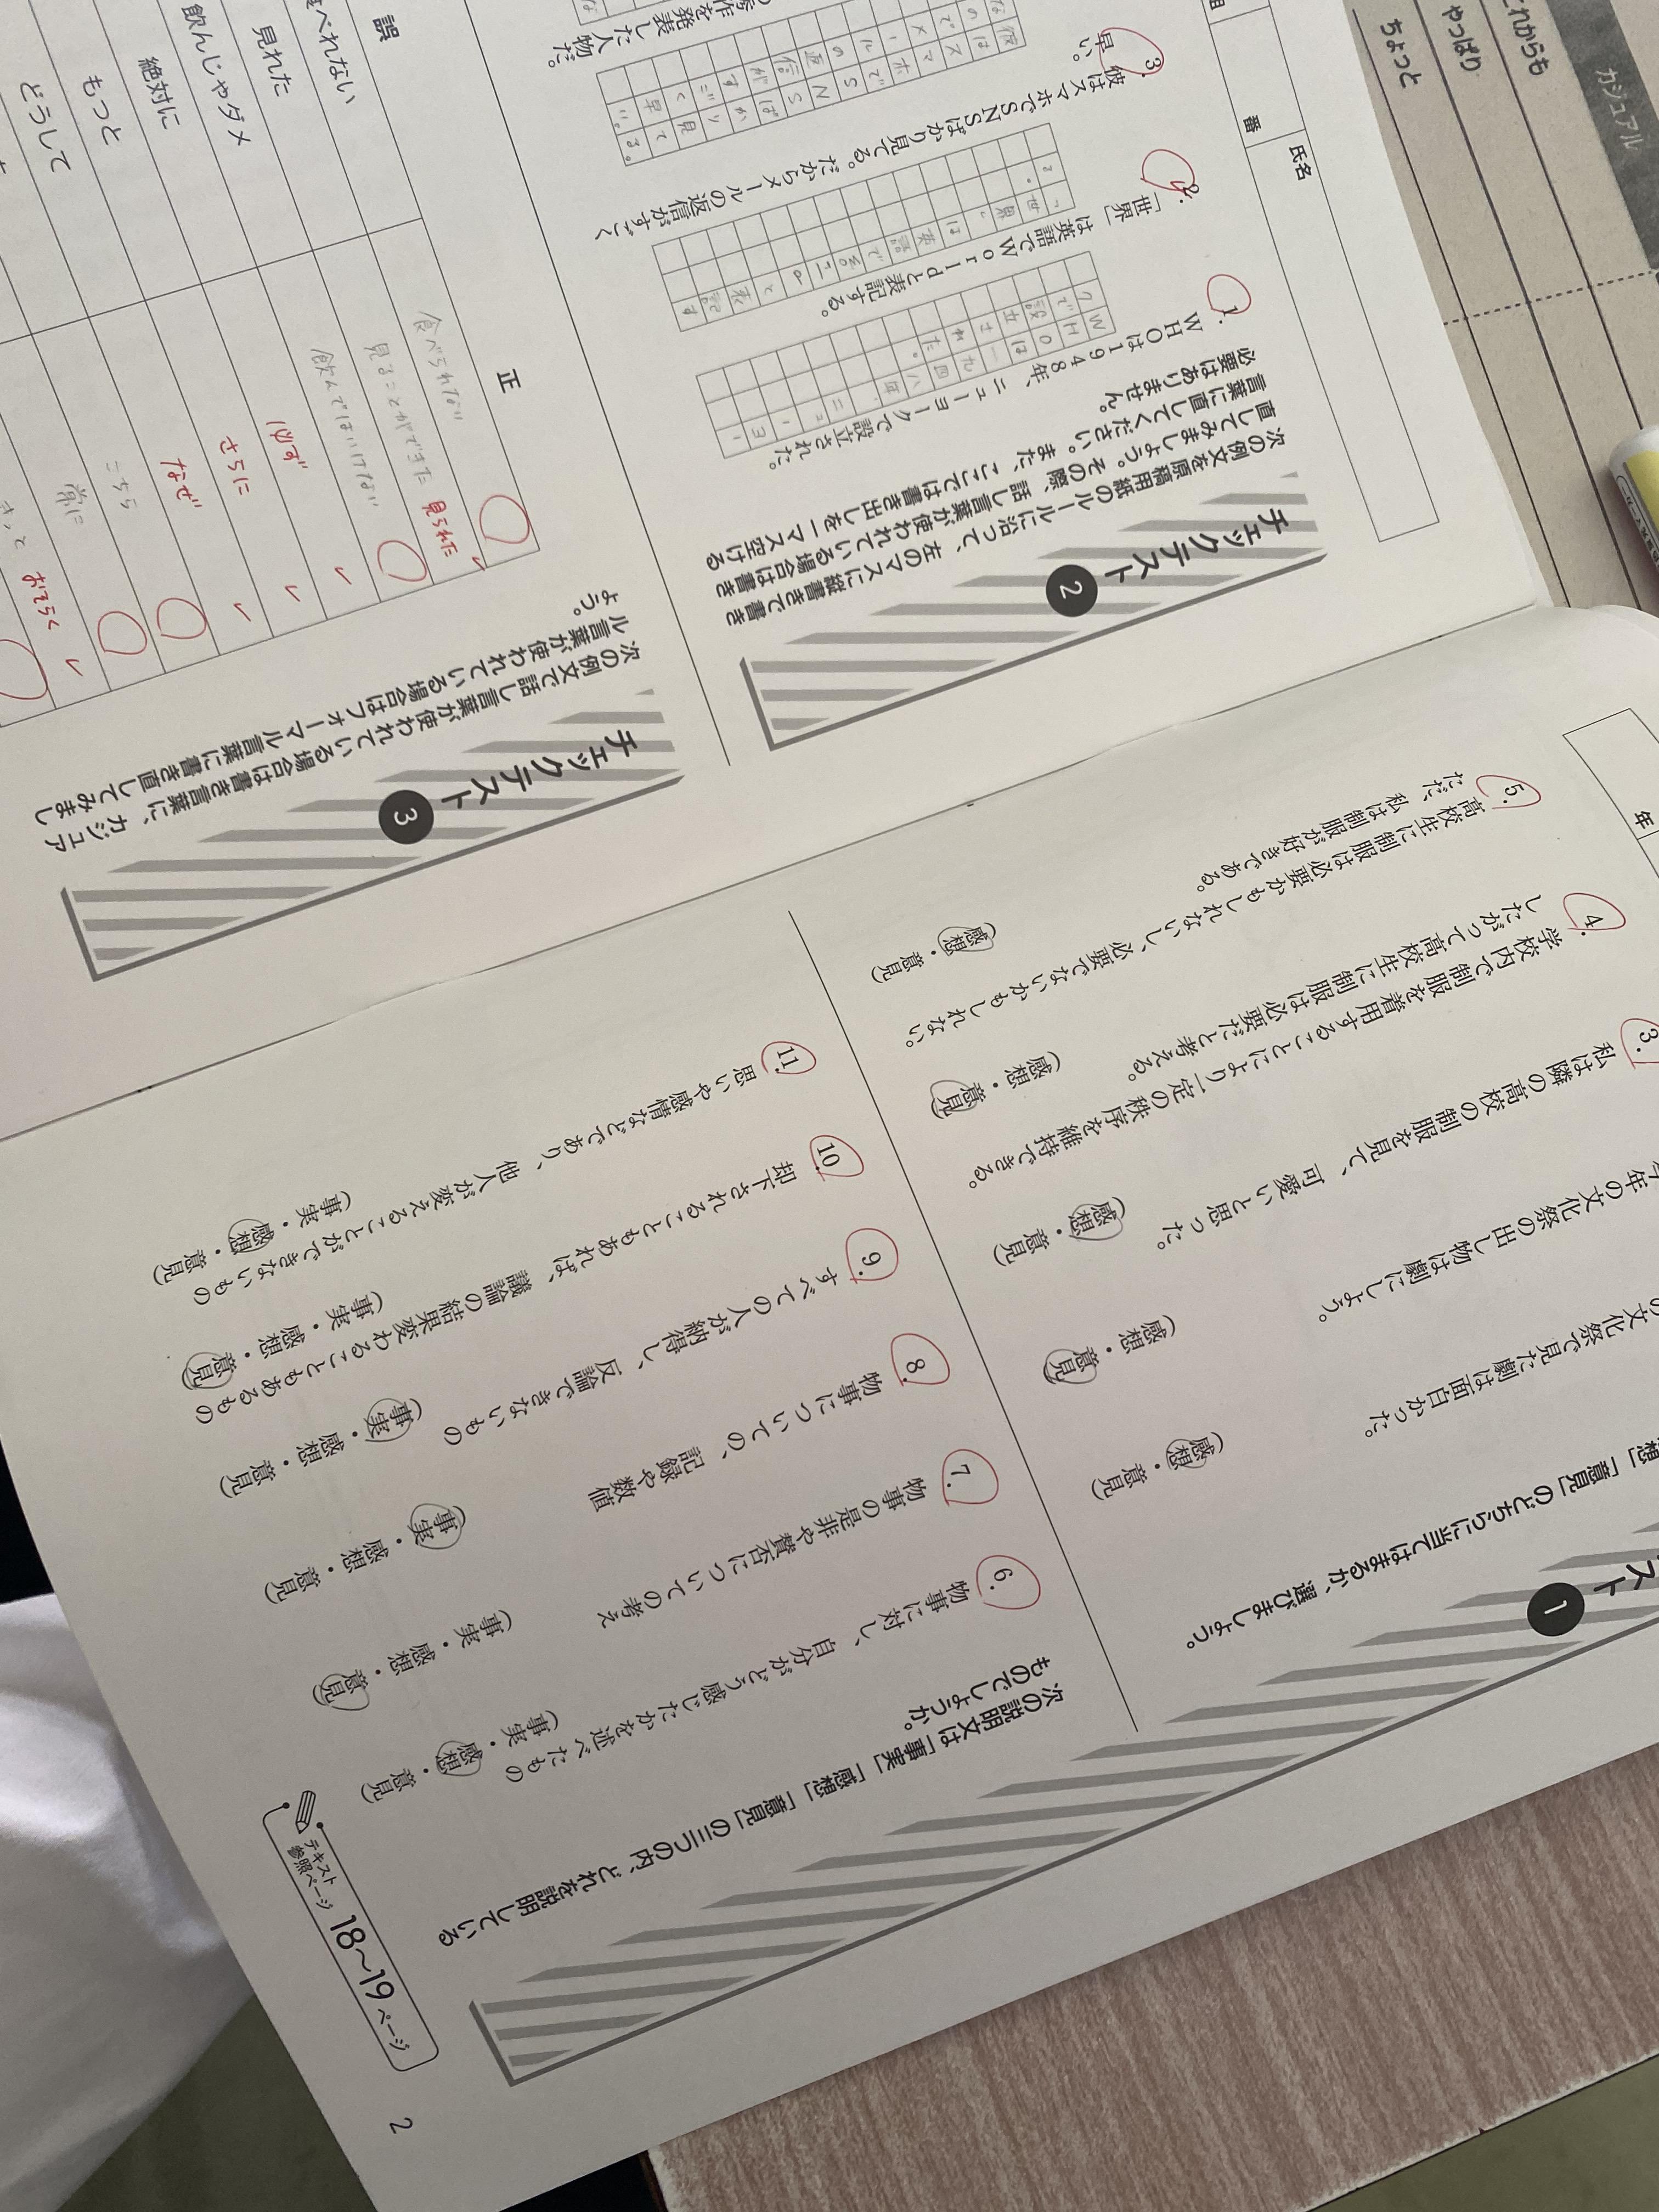 スト 1
想」「意見」のどちらに当てはまるか、選びましょう。
の文化祭で見た劇は面白かった。
(感想・意見)
年の文化祭の出し物は劇にしよう。
(感想・意見)
3.
私は隣の高校の制服を見て、可愛いと思った。
(感想・意見)
4.
学校内で制服を着用することにより一定の秩序を維持できる。
したがって高校生に制服は必要だと考える。
(感想・意見)
5.
高校生に制服は必要かもしれないし、必要でないかもしれない。
ただ、私は制服が好きである。
(感想・意見)
年
次の説明文は「事実」「感想」「意見」の三つの内、どれを説明している
ものでしょうか。
6.
物事に対し、自分がどう感じたかを述べたもの
(事実・感想・意見)
7.
物事の是非や賛否についての考え
(事実・感想・意見)
8.
物事についての、記録や数値
(事実・感想・意見)
9.
すべての人が納得し、反論できないもの
(事実・感想・意見)
10.
却下されることもあれば、議論の結果変わることもあるもの
(事実・感想・意見)
11.
思いや感情などであり、他人が変えることができないもの
(事実・感想・意見)
テキスト
参照ページ 18〜19 ページ
2
チェックテスト 2
次の例文を原稿用紙のルールに沿って、左のマスに縦書きで書き
直してみましょう。その際、話し言葉が使われている場合は書き
言葉に直してください。また、ここでは書き出しを一マス空ける
必要はありません。
1.
WHOは1948年、ニューヨークで設立された。
WHOは一九四八年、ニューヨー
クで設立された。
2.
「世界」は英語でWorldと表記する。
「世界」は英語でWorldと表記す
る。
3.
彼はスマホでSNSばかり見てる。だからメールの返信がすごく
早い。
秀作を発表した人物だ。
番
氏名
チェックテスト 3
次の例文で話し言葉が使われている場合は書き言葉に、カジュア
ル言葉が使われている場合はフォーマル言葉に書き直してみまし
ょう。
誤
正
食べれない
食べられない
見れた
見ることができた 見られた
飲んじゃダメ
飲んではいけない
絶対に
必ず
もっと
さらに
どうして
なぜ
こちら
常に
きっと おそらく
カジュアル
これからも
やっぱり
ちょっと